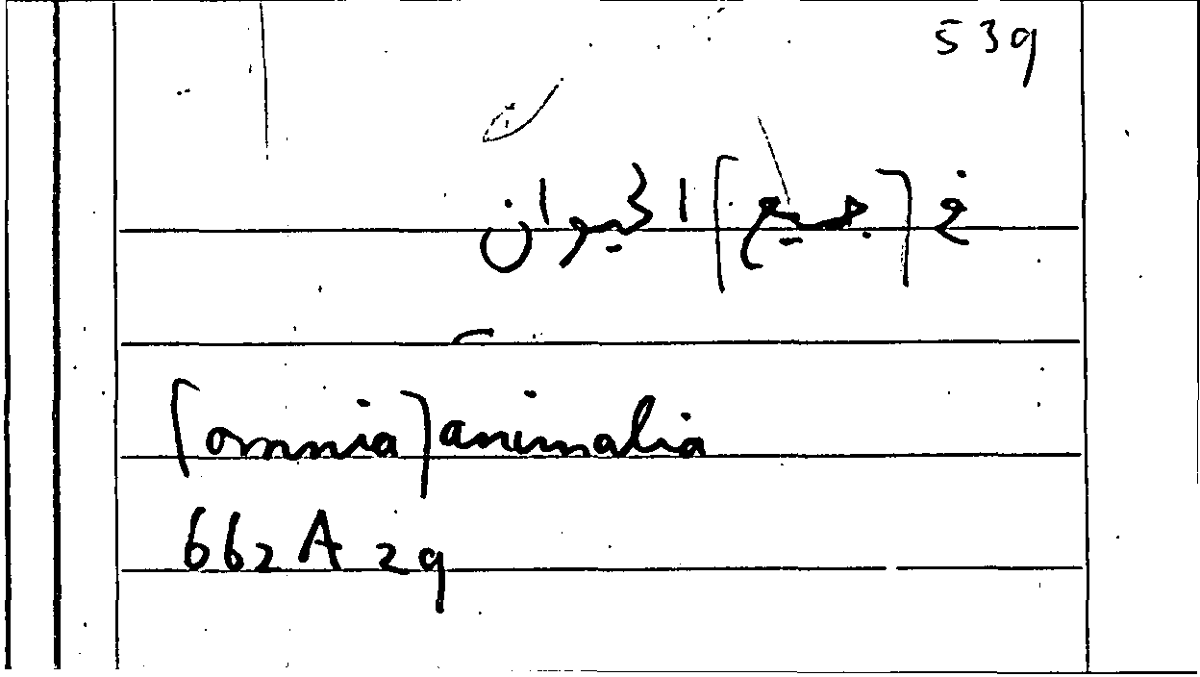 539
في [جميع] الحيوان
[omnia] animalia
662 A 29